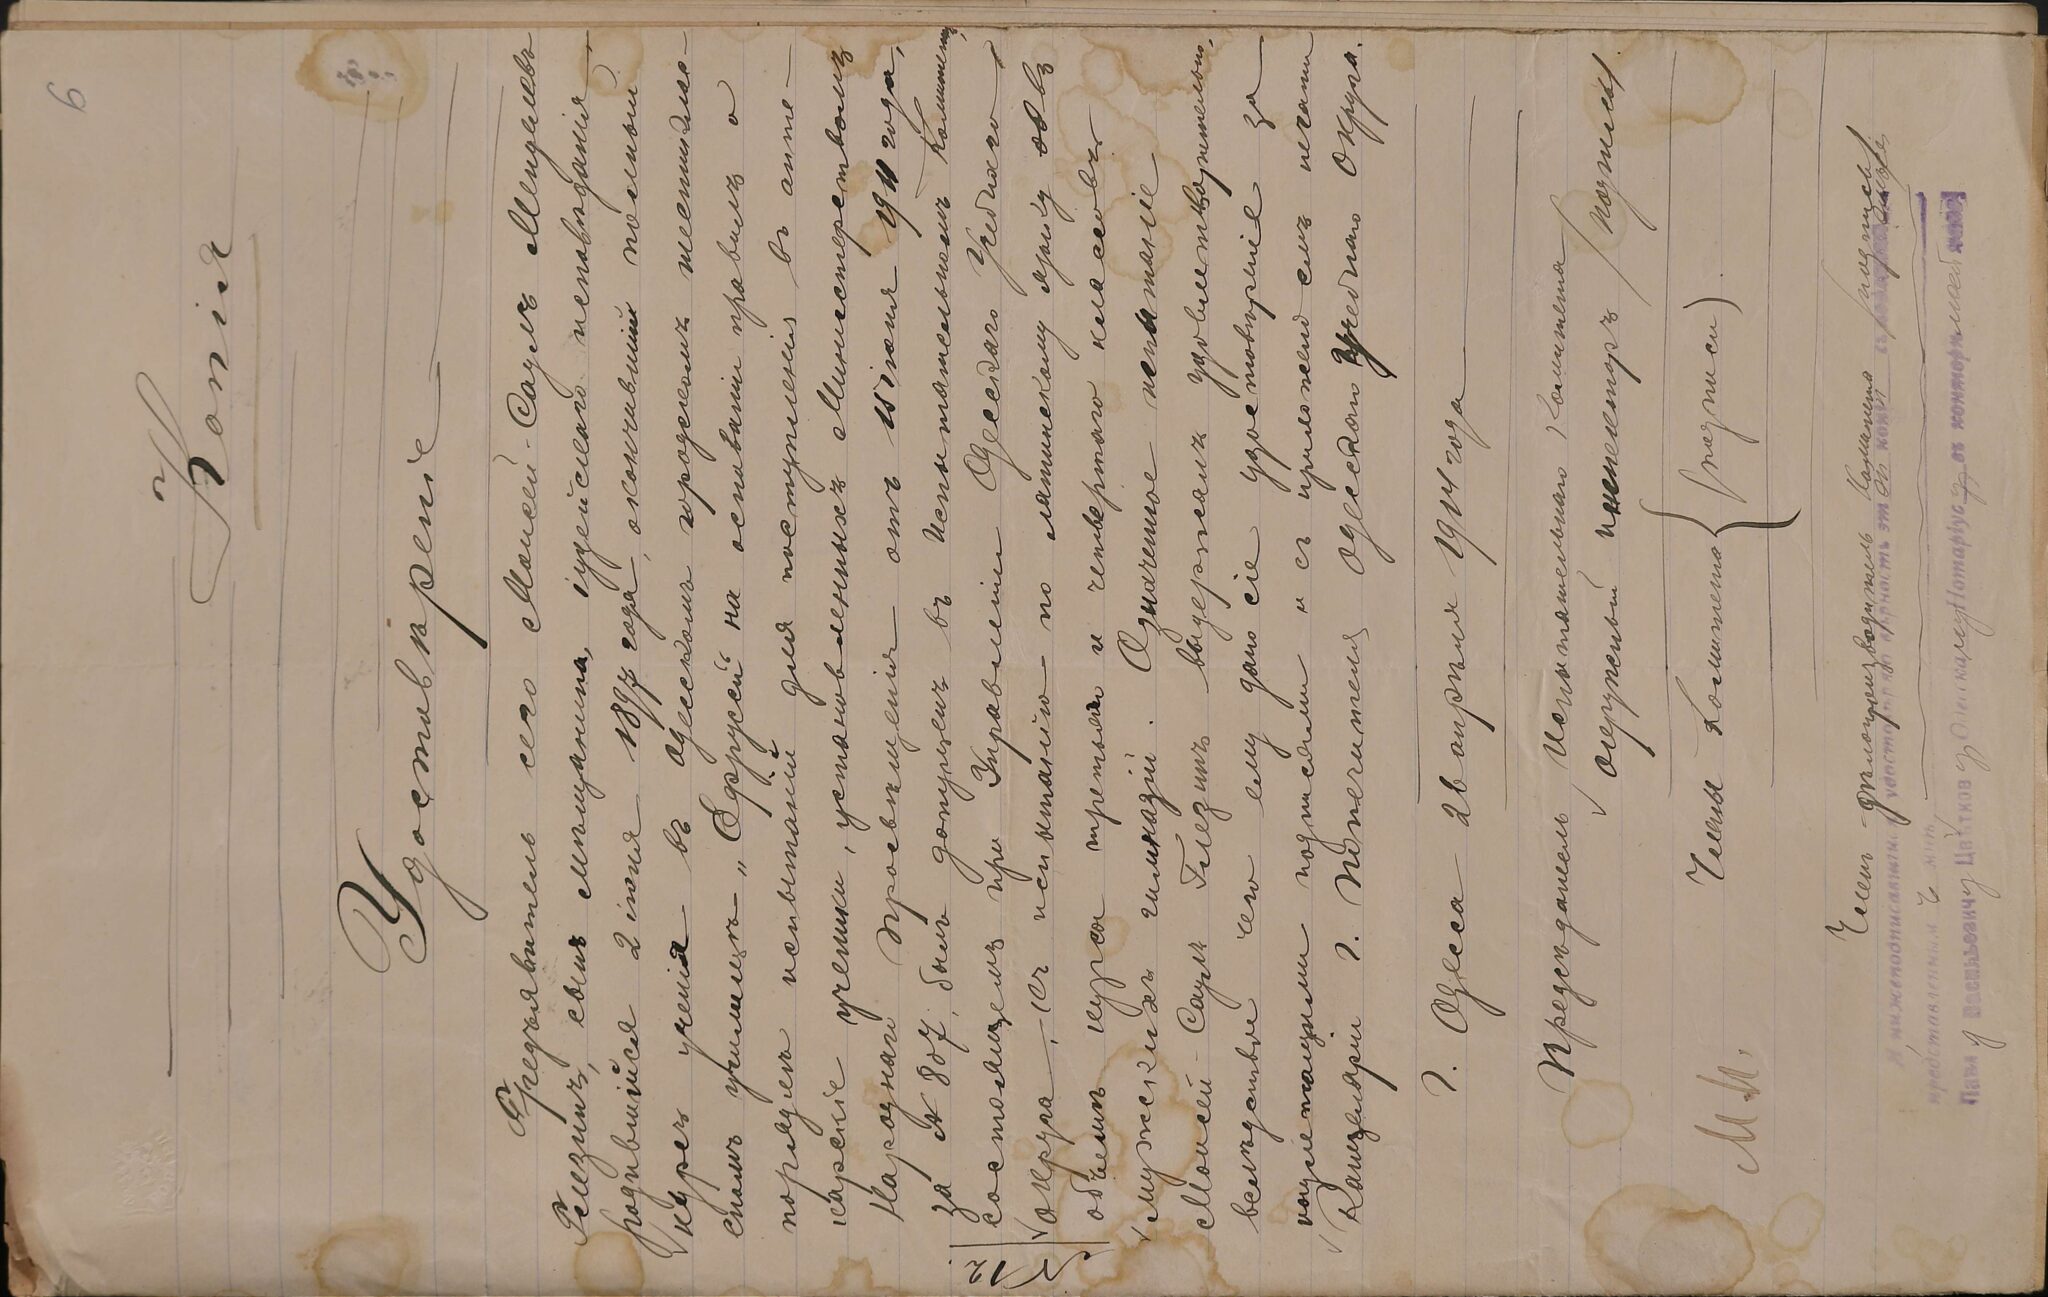 6
Копія
Удостовѣреніе
Предъявитель сего Моисей-Сауль Менделевъ
Глезинъ, сынъ мѣщанина, іудейскаго исповѣданія,
родившійся 2 іюня 1897 года, окончившій полный
курсъ ученія въ Одесскомъ городскомъ шестиклас-
сномъ училищѣ „Эфрусси" на основаніи правилъ о
порядкѣ испытаній для поступленія въ апте-
карскіе ученики, установленныхъ Министерствомъ
Народнаго Просвѣщенія отъ 15 іюня 1911 года,
за № 807, былъ допущенъ въ Испытательномъ Комитетѣ,
состоящемъ при Управленіи Одесскаго Учебнаго
округа, къ испытанію по латинскому языку въ
объемѣ курса третьяго и четвертаго классовъ
мужскихъ гимназій. Означенное испытаніе
Моисей-Сауль Глезинъ выдержалъ удовлетворительно,
вслѣдствіе чего ему дано сіе удостовѣреніе за
надлежащими подписями и съ приложеніемъ печати
Канцеляріи г. Попечителя Одесскаго Учебнаго Округа.
г. Одесса 26 апрѣля 1914 года
Предсѣдатель Испытательнаго Комитета
Окружный инспекторъ (подпись)
Члены Комитета { (подписи)
М.П.
Членъ-дѣлопроизводитель Комитета (подпись)
Я нижеподписавшійся, удостовѣряю вѣрность этой копіи съ
представленнымъ мнѣ
Павлу Васильевичу Цвѣткову Одесскому Нотаріусу въ конторѣ моей